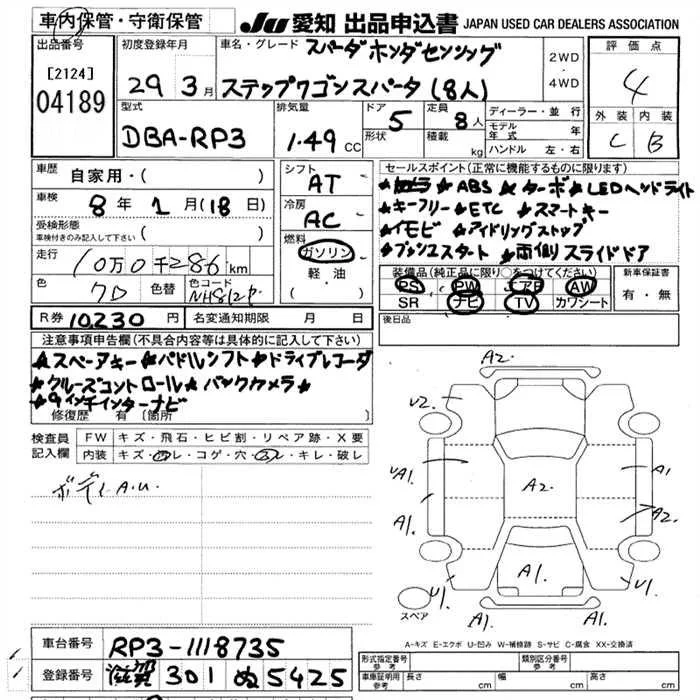 車内保管・守衛保管
JU 愛知 出品申込書 JAPAN USED CAR DEALERS ASSOCIATION
出品番号
[2124]
04189
初度登録年月
29 3月
車名・グレード スパーダ ホンダセンシング
ステップワゴンスパーダ (8人)
2WD
・
4WD
評価点
4
外装 内装
C B
型式
DBA-RP3
排気量
1.49 CC
ドア 5
形状
定員 8人
積載 kg
ディーラー・並行
モデル年式 年
ハンドル 左・右
車歴
自家用・( )
車検
8年 2月 (18日)
受検形態
車検付きのみ記入して下さい ( )
走行
10万0千286km
色 色替 色コード
シフト AT
冷房 AC
燃料
ガソリン
・
軽油
セールスポイント(正常に機能するものに限ります)
★ABS ★ターボ ★LEDヘッドライト
★キーフリー ★ETC ★スマートキー
★イモビ ★アイドリングストップ
★プッシュスタート ★両側スライドドア
装備品(純正品に限り○をつけてください)
PS PW エアB AW
SR ナビ TV カワシート
新車保証書
有・無
後日品
R券 10,230円 名変通知期限 月 日
注意事項申告欄(不具合内容等は具体的に記入して下さい)
★スペアキー ★パドルシフト ★ドライブレコーダ
★クルーズコントロール ★バックカメラ★
★9インチインターナビ
修復歴 有 [箇所 ]
検査員記入欄
FW キズ・飛石・ヒビ割・リペア跡・X要
内装 キズ・ヨレ・コゲ・穴・スレ・キレ・破レ
ボディ A.U.
A2.
U2.
UA1.
A1
A2.
A1.
A2
U1.
A1.
U1.
A1.
スペア
A-キズ E-エクボ U-凹み W-補修跡 S-サビ C-腐食 XX-交換済
車台番号 RP3-1118735
登録番号 滋賀 301 ぬ 5425
形式指定番号 参考
類別区分番号 参考
車庫証明用 参考 長さ cm 幅 cm 高さ cm